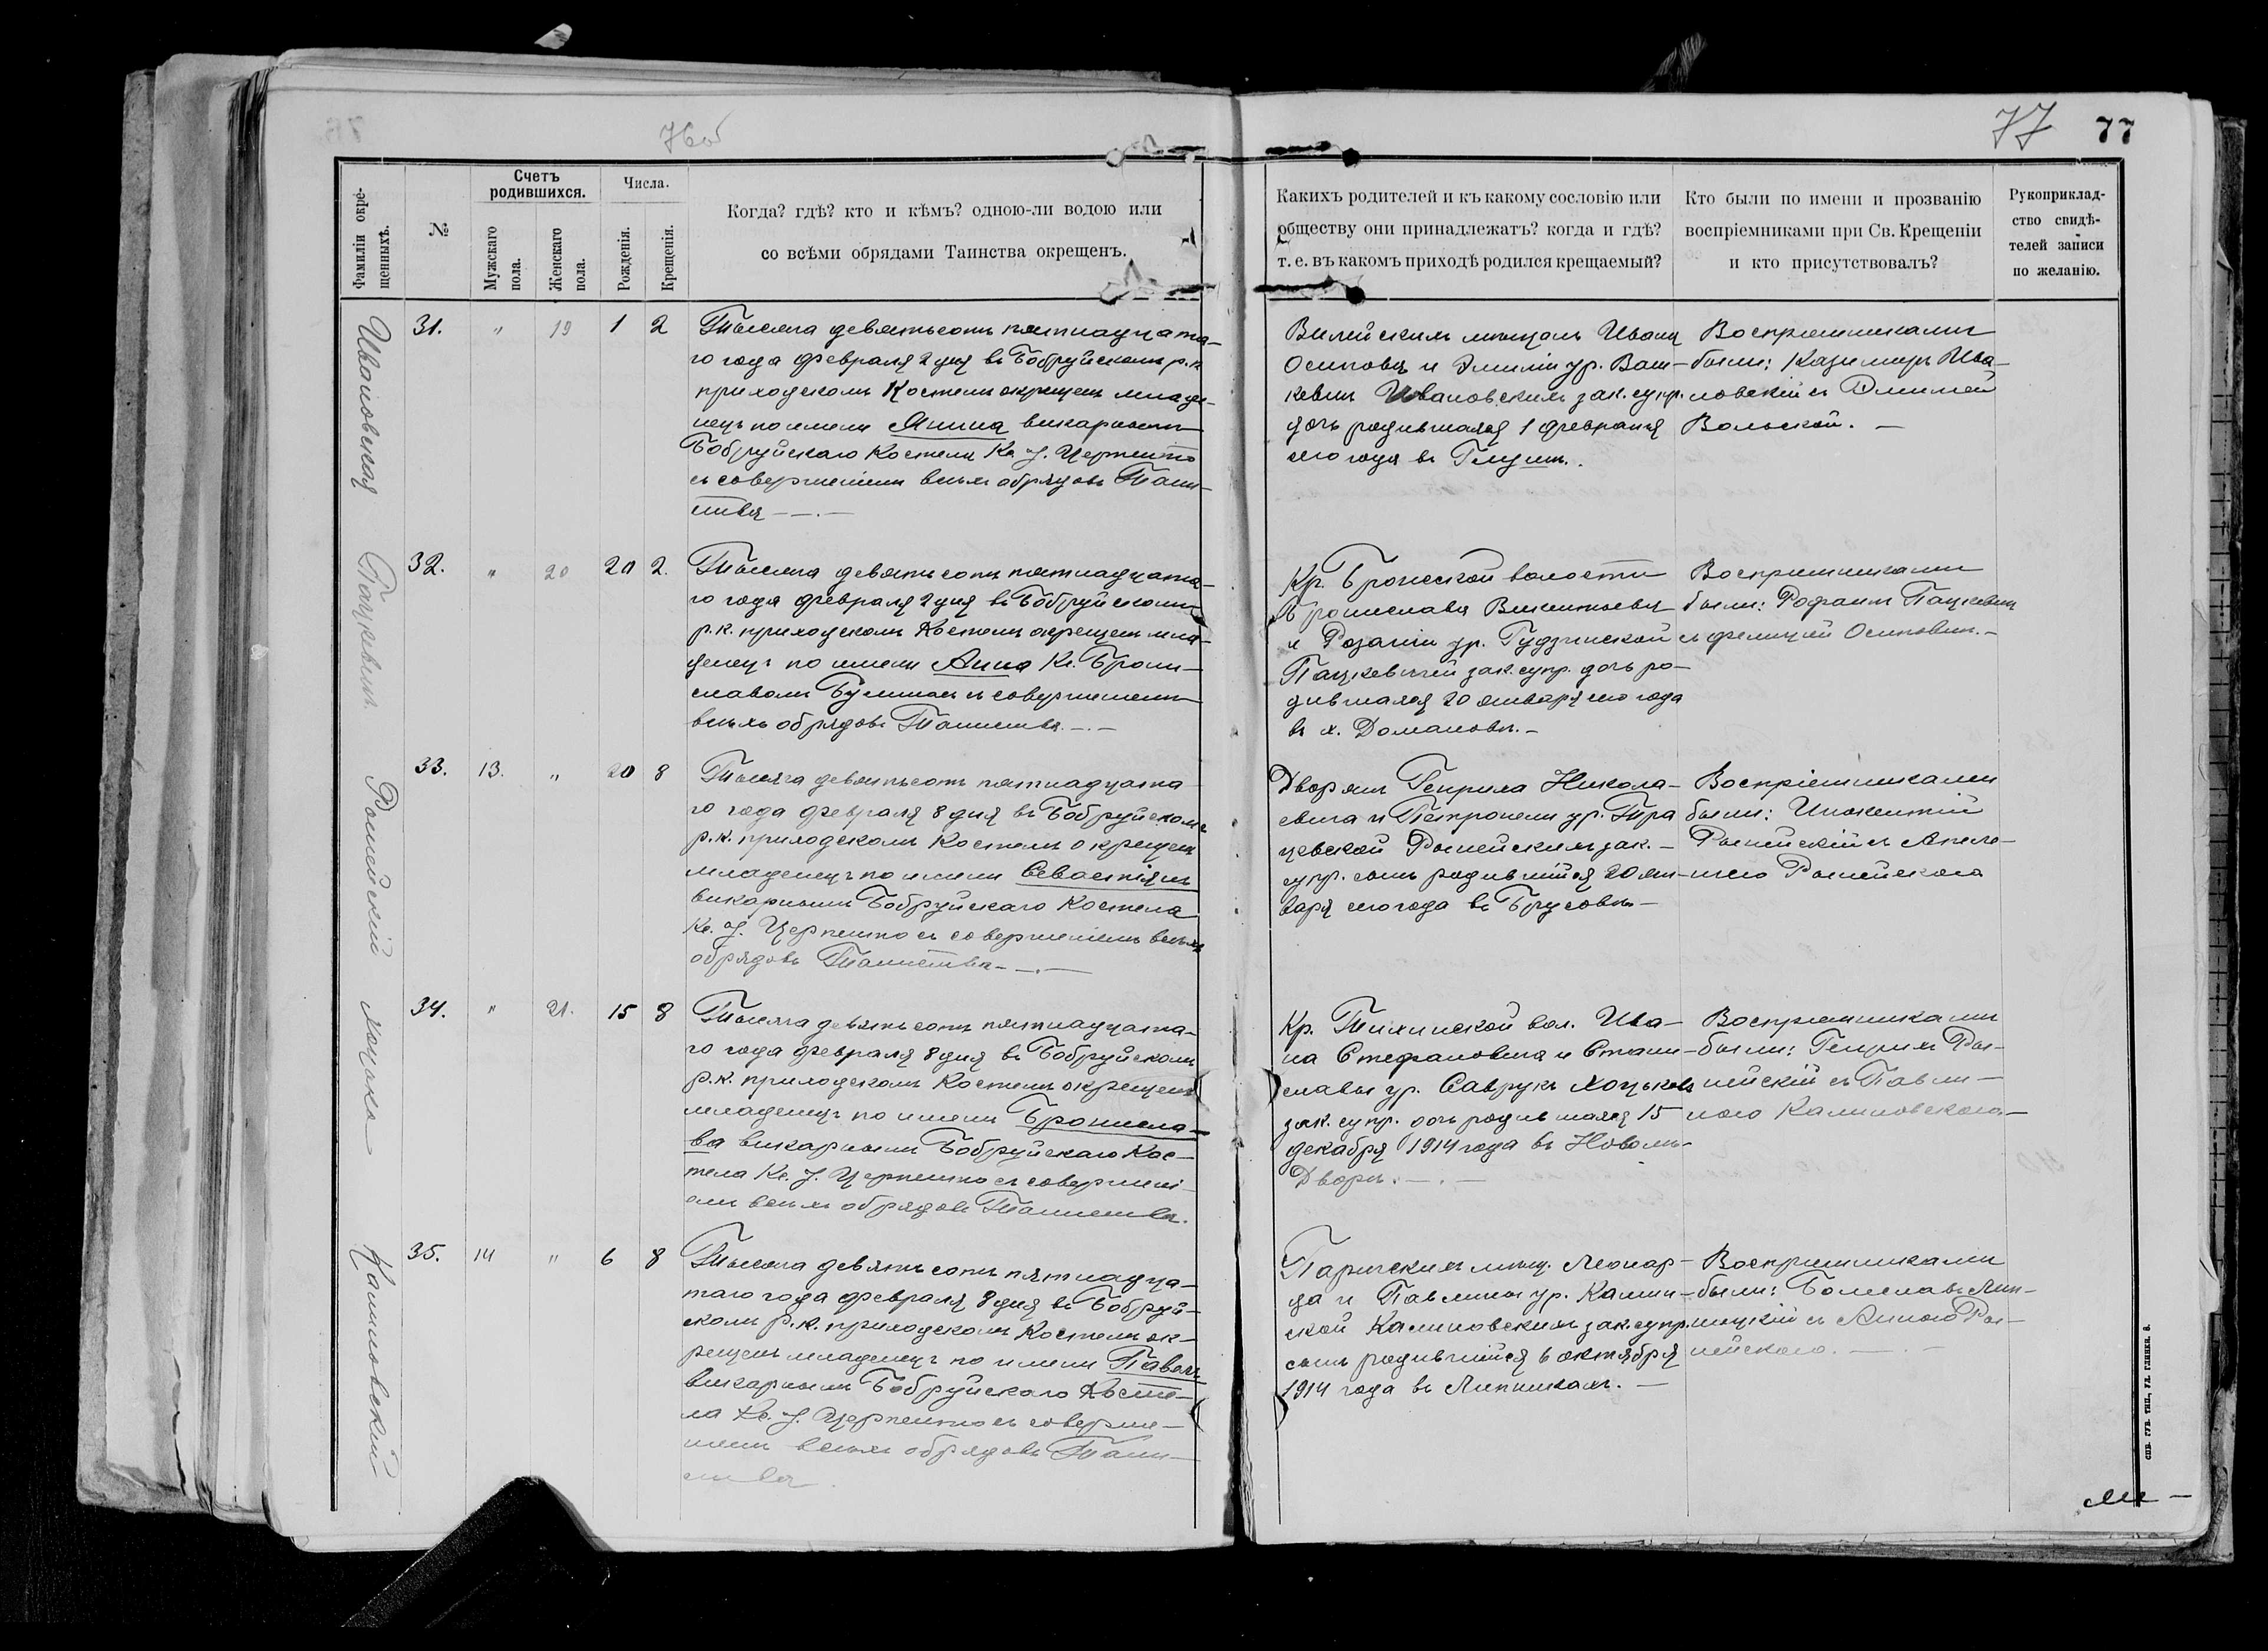 76об
77
77
Фамиліи окре-
щенныхъ.
№
Счетъ
родившихся.
Мужскаго
пола.
Женскаго
пола.
Числа.
Рожденія.
Крещенія.
Когда? гдѣ? кто и кѣмъ? одною-ли водою или
со всѣми обрядами Таинства окрещенъ.
Какихъ родителей и къ какому сословію или
обществу они принадлежатъ? когда и гдѣ?
т. е. въ какомъ приходѣ родился крещаемый?
Кто были по имени и прозванію
воспріемниками при Св. Крещеніи
и кто присутствовалъ?
Рукоприклад-
ство свидѣ-
телей записи
по желанію.
Ивановская
31.
"
19
1
2
Тысяча девятьсотъ пятнадцата-
го года февраля 2 дня въ Бобруйскомъ р.к.
приходскомъ Костелѣ окрещенъ младе-
нецъ по имени Янина викарнымъ
Бобруйскаго Костела Кс. J.
съ совершеніемъ всѣхъ обрядовъ Таин-
ства
Вилейскихъ мѣщанъ Ивана
Осипова и Эмиліи ур. Ваш-
кевичъ Ивановскихъ зак. супр.
дочь родившаяся 1 февраля
сего года въ
Воспріемниками
были: Казимиръ Ива-
новскій съ Эмиліей
Вольской.
Пацкевичъ
32.
"
20
20
2.
Тысяча девятьсотъ пятнадцата-
го года февраля 2 дня въ Бобруйскомъ
р.к. приходскомъ Костелѣ окрещенъ мла-
денецъ по имени Анна Кс. Брони-
славомъ съ совершеніемъ
всѣхъ обрядовъ Таинства.
Кр. Брожской волости
Бронислава Викентьева
и Розаліи ур. Гудзинской
Пацкевичей зак. супр. дочь ро-
дившаяся 20 января сего года
въ х. Домановѣ.
Воспріемниками
были: Пацкевичъ
съ Фелиціей Осиповичъ.
Росейскій
33.
13.
"
20
8
Тысяча девятьсотъ пятнадцата
го года февраля 8 дня въ Бобруйскомъ
р.к. приходскомъ Костелѣ окрещенъ
младенецъ по имени Севастіянъ
викарнымъ Бобруйскаго Костела
Кс. J. съ совершеніемъ всѣхъ
обрядовъ Таинства
Дворянъ Генриха Никола-
евича и Петронели ур.
Росейскихъ зак.
супр. сынъ родившійся 20 ян-
варя сего года въ Брусовѣ
Воспріемниками
были: Инокентій
Росейскій съ Анеле-

Хоцько
34.
"
21.
15
8
Тысяча девятьсотъ пятнадцата-
го года февраля 8 дня въ Бобруйскомъ
р.к. приходскомъ Костелѣ окрещенъ
младенецъ по имени Бронисла-
ва викарнымъ Бобруйскаго Кос-
тела Кс. J. съ совершені-
емъ всѣхъ обрядовъ Таинства.
Кр. вол. Ива-
на Стефановича и Стани-
славы ур. Саврукъ Хоцьковъ
зак. супр. дочь родившаяся 15
декабря 1914 года въ Новомъ-
Дворѣ.
Воспріемниками
были: Генрихъ Ро-
сейскій съ Павли-
ною Калиновскою
Калиновскій
35.
14
"
6
8
Тысяча девятьсотъ пятнадца-
таго года февраля 8 дня въ Бобруй-
скомъ р.к. приходскомъ Костелѣ ок-
рещенъ младенецъ по имени Павелъ
викарнымъ Бобруйскаго Косте-
ла Кс. J. съ соверше-
ніемъ всѣхъ обрядовъ Таин-
ства
Паричскихъ мѣщ. Леонар-
да и Павлины ур. Камин-
ской Калиновскихъ зак. супр.
сынъ родившійся 6 октября
1914 года въ Липникахъ.
Воспріемниками
были: Болеславъ Лип-
ницкій съ Анною Ро-
сейскою.
СПБ. ГУБ. ТИП., УЛ. ГЛИНКИ, 8.